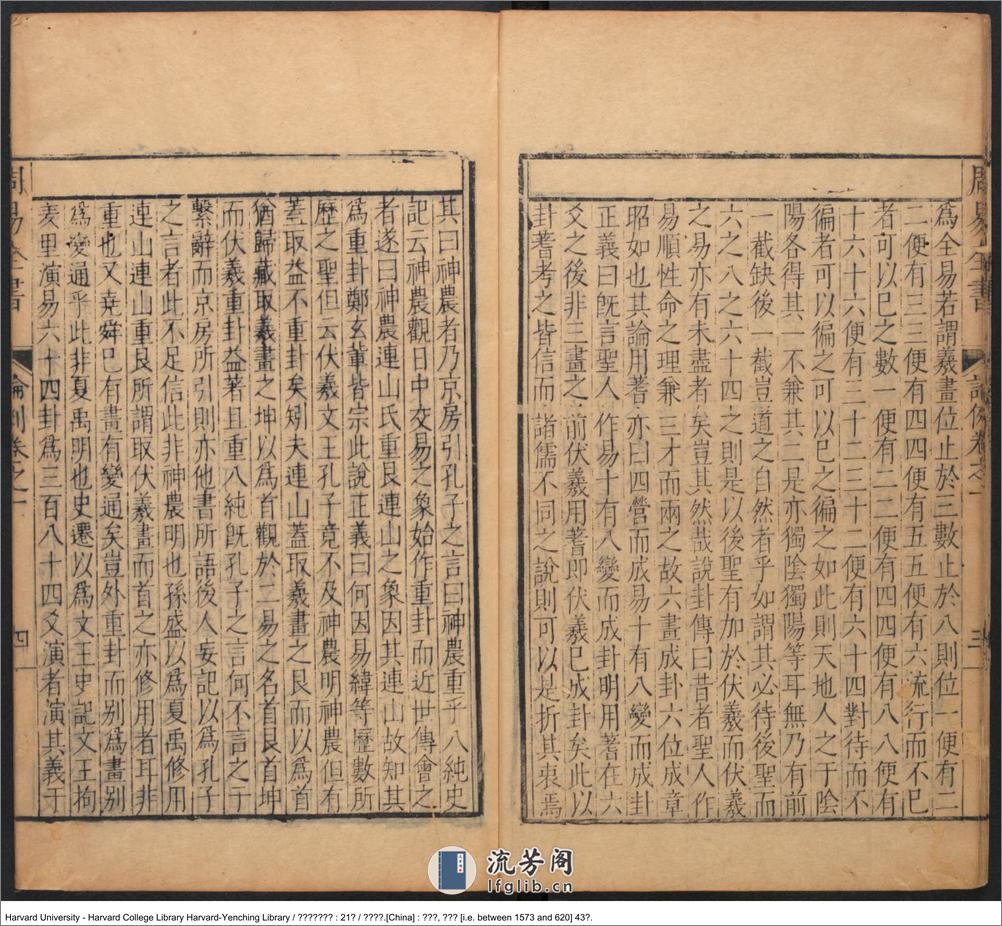 爲全易若謂羲畫位止於三數止於八則位一便有二
二便有三三便有四四便有五五便有六流行而不已
者可以已之數一便有二二便有四四便有八八便有
十六十六便有三十二三十二便有六十四對待而不
徧者可以徧之可以已之徧之如此則天地人之于陰
陽各得其一不兼其二是亦獨陰獨陽等耳無乃有前
一截缺後一截豈道之自然者乎如謂其必待後聖而
六之八之六十四之則是以後聖有加於伏羲而伏羲
之易亦有未盡者矣豈其然哉說卦傳曰昔者聖人作
易順性命之理兼三才而兩之故六畫成卦六位成章
昭如也其論用蓍亦曰四營而成易十有八變而成卦
正義曰旣言聖人作易十有八變而成卦明用蓍在六
爻之後非三畫之前伏羲用蓍即伏羲已成卦矣此以
卦蓍考之皆信而諸儒不同之說則可以是折其衷焉
周易全書
論例卷之一
三
其曰神農者乃京房引孔子之言曰神農重乎八純史
記云神農觀日中交易之象始作重卦而近世傳會之
者遂曰神農連山氏重艮連山之象因其連山故知其
爲重卦鄭玄輩皆宗此說正義曰何因易緯等歷數所
歷之聖但云伏羲文王孔子竟不及神農明神農但有
蓋取益不重卦矣矧夫連山蓋取羲畫之艮而以爲首
猶歸藏取羲畫之坤以爲首觀於二易之名首艮首坤
而伏羲重卦益著且重八純旣孔子之言何不言之于
繫辭而京房所引則亦他書所語後人妄記以爲孔子
之言者此不足信此非神農明也孫盛以爲夏禹修用
連山連山重艮所謂取伏羲畫而首之亦修用者耳非
重也又堯舜已有畫有變通矣豈外重卦而別爲畫別
爲變通乎此非夏禹明也史遷以爲文王史記文王拘
羑里演易六十四卦爲三百八十四爻演者演其義于
周易全書
論例卷之一
四
流芳阁
lfglib.cn
Harvard University - Harvard College Library Harvard-Yenching Library / ??????? : 21? / ????.[China] : ???, ??? [i.e. between 1573 and 620] 43?.